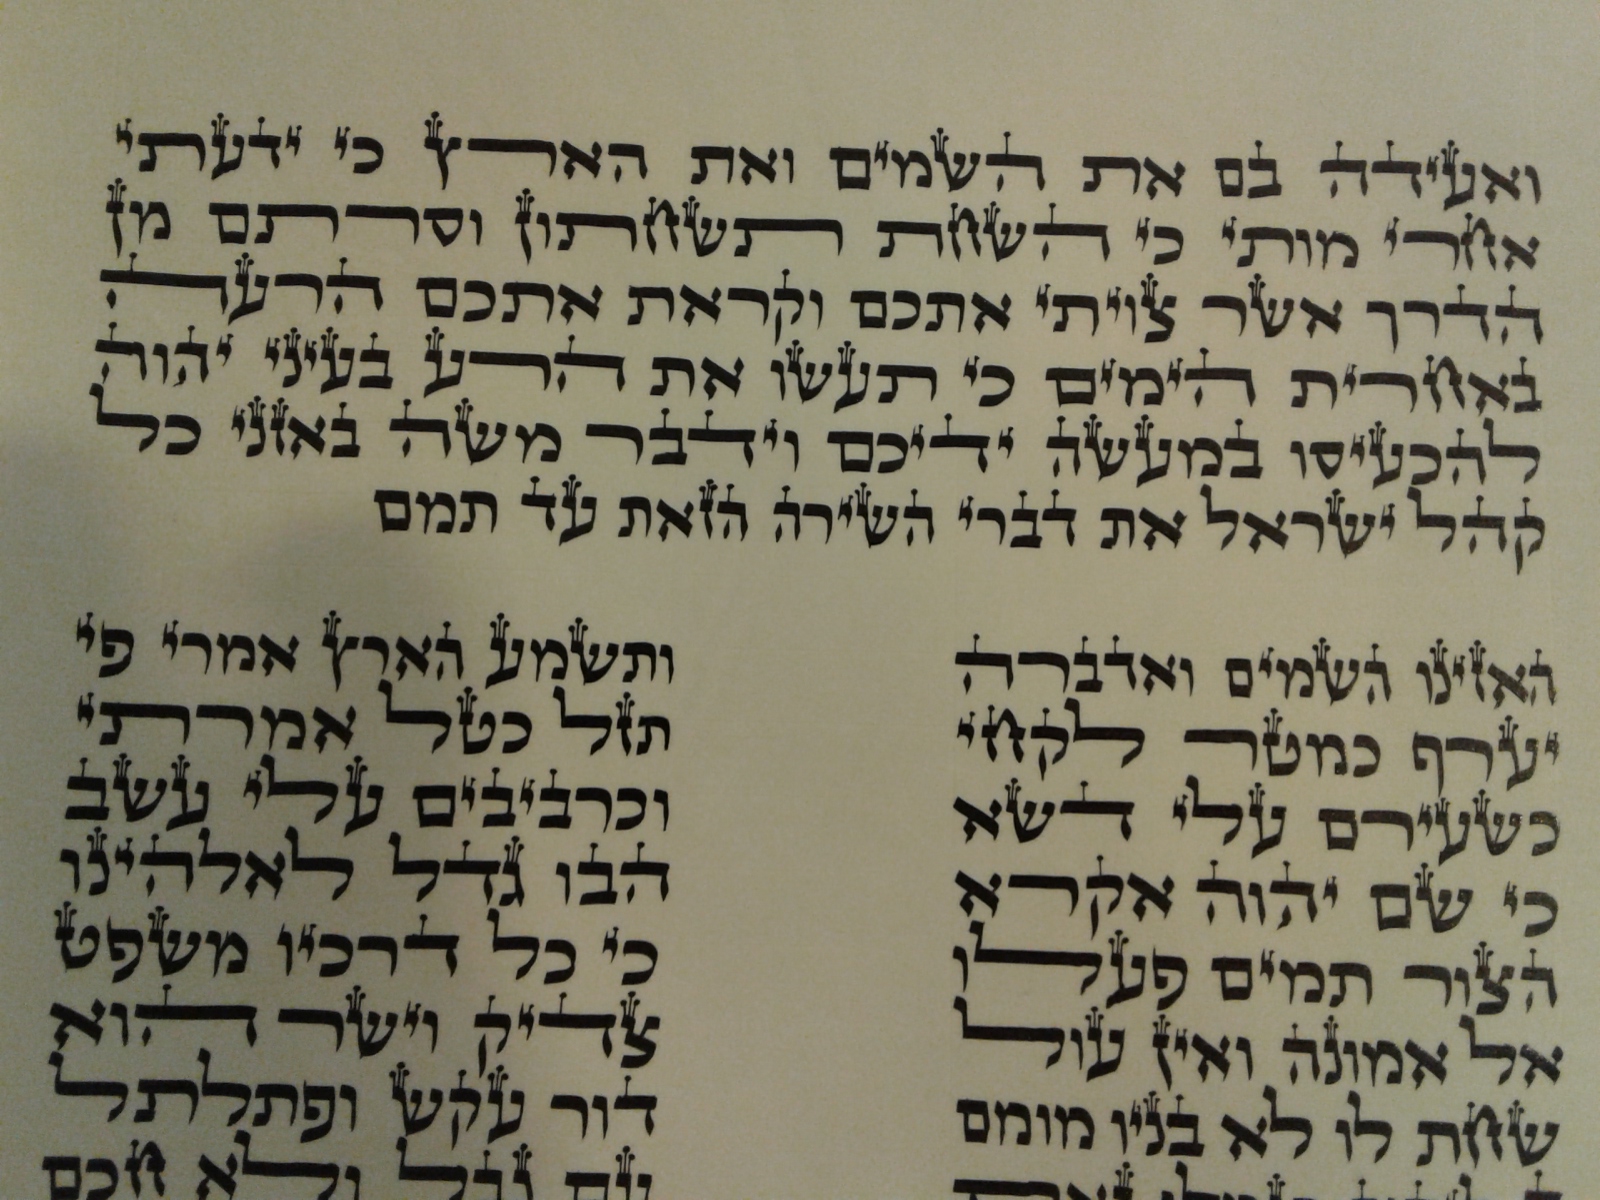 ואעידה בם את השמים ואת הארץ כי ידעתי
אחרי מותי כי השחת תשחתון וסרתם מן
הדרך אשר צויתי אתכם וקראת אתכם הרעה
באחרית הימים כי תעשו את הרע בעיני יהוה
להכעיסו במעשה ידיכם וידבר משה באזני כל
קהל ישראל את דברי השירה הזאת עד תמם
האזינו השמים ואדברה ותשמע הארץ אמרי פי
יערף כמטר לקחי תזל כטל אמרתי
כשעירם עלי דשא וכרביבים עלי עשב
כי שם יהוה אקרא הבו גדל לאלהינו
הצור תמים פעלו כי כל דרכיו משפט
אל אמונה ואין עול צדיק וישר הוא
שחת לו לא בניו מומם דור עקש ופתלתל
עם נבל ולא חכם